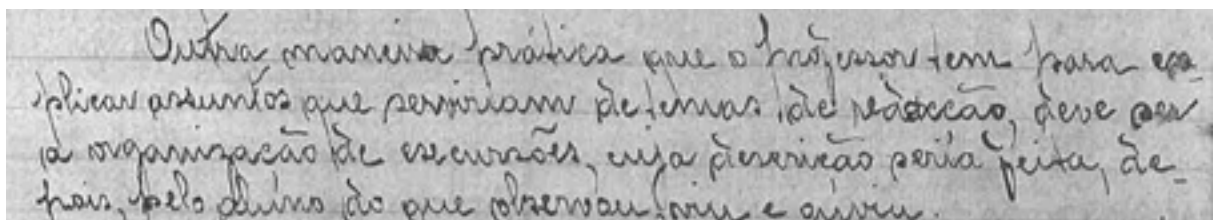 Outra maneira prática que o Professor tem para ex-
plicar assuntos que serviriam de temas de redacção, deve ser
a organização de excursões, cuja descrição seria feita, de-
pois, pelo aluno do que observou, viu e ouviu.